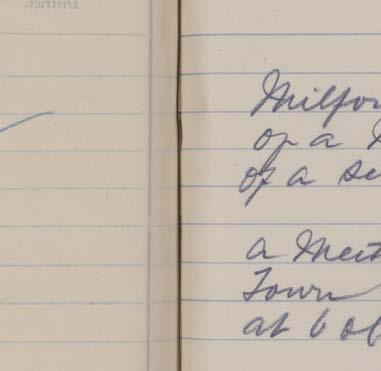 District.
Milfor
of a
of a se
a Meet
Town
at 6 o